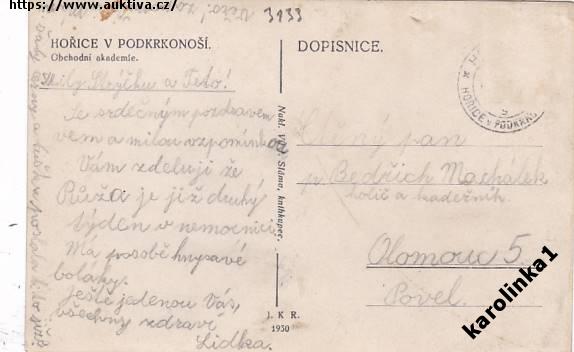 https://www.auktiva.cz/
3133
HOŘICE V PODKRKONOŠÍ.
Obchodní akademie.
DOPISNICE.
Milý Strýčku a Teto!
Se srdečným pozdravem
vem a milou vzpomínkou
Vám zdeluji že
Růža je již druhý
týden v nemocnici
Má posobě hnysavé
boláky.
Ještě jedenou Vás,
všechny zdraví
Lidka.
Nakl. V. Sláma, knihkupec.
J. K. R.
1930
Ctěný pan
p Bedřich Machálek
holič a kadeřník.
Olomouc 5.
Povel.
HOŘICE V PODKRKON
karolinka1